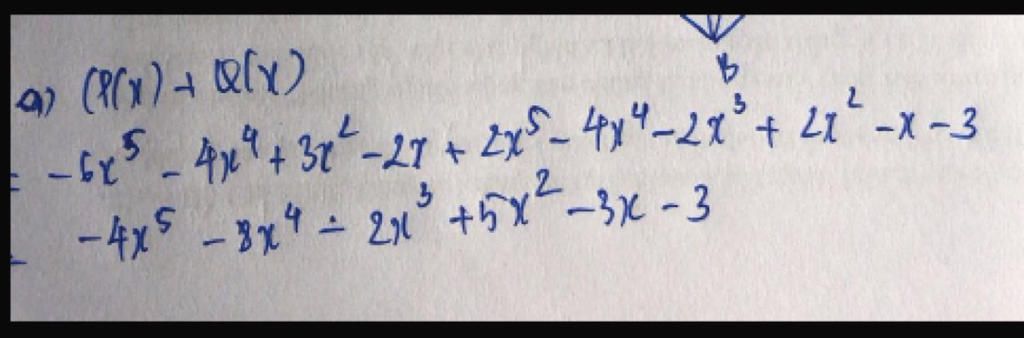 B
a) (P(x) + Q(x)
= -6x⁵ - 4x⁴ + 3x² - 2x + 2x⁵ - 4x⁴ - 2x³ + 2x² - x - 3
-4x⁵ - 8x⁴ - 2x³ + 5x² - 3x - 3